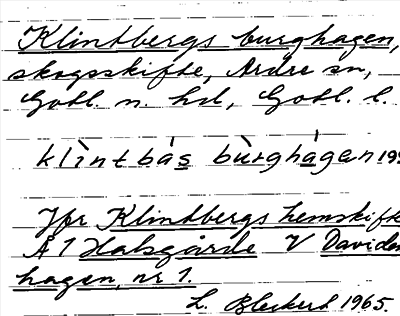 Klintbergs burghagen,
skogsskifte, Ardre sn,
Gotl. n. hd, Gotl. l.
klìntbás bùrghágan
Jfr Klintbergs hemskifte
Å 1 Halsgärde V Davide
hagen, nr 1.
L. Bleckert 1965.